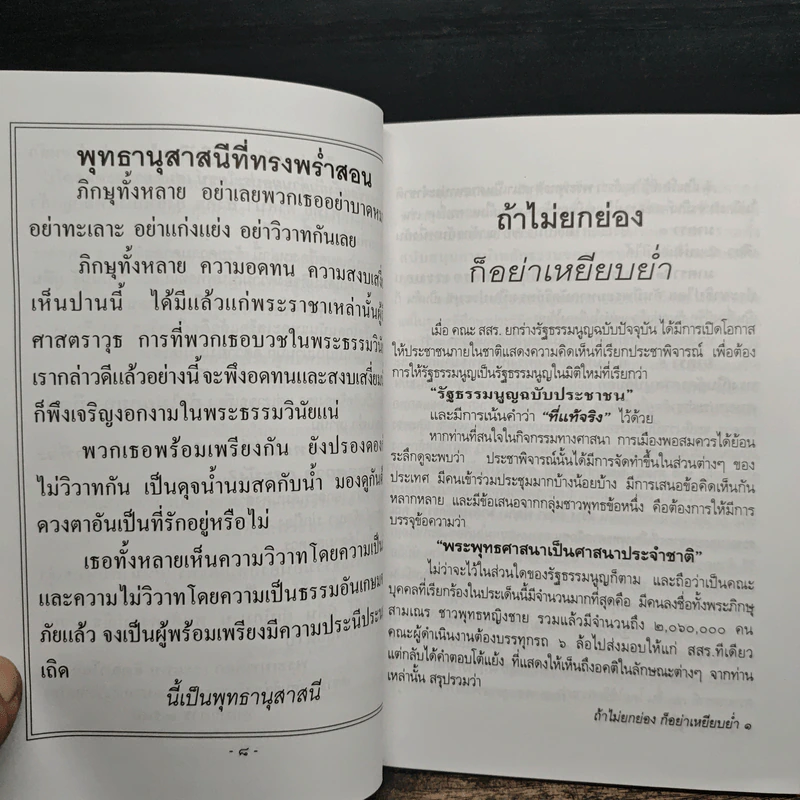 พุทธานุสาสนีที่ทรงพร่ำสอน
ภิกษุทั้งหลาย อย่าเลยพวกเธออย่าบาดหม
อย่าทะเลาะ อย่าแก่งแย่ง อย่าวิวาทกันเลย
ภิกษุทั้งหลาย ความอดทน ความสงบเสงี่
เห็นปานนี้ ได้มีแล้วแก่พระราชาเหล่านั้นผู้
ศาสตราวุธ การที่พวกเธอบวชในพระธรรมวินั
เรากล่าวดีแล้วอย่างนี้ จะพึงอดทนและสงบเสงี่ยม
ก็พึงเจริญงอกงามในพระธรรมวินัยแน่
พวกเธอพร้อมเพรียงกัน ยังปรองดอง
ไม่วิวาทกัน เป็นดุจน้ำนมสดกับน้ำ มองดูกัน
ดวงตาอันเป็นที่รักอยู่หรือไม่
เธอทั้งหลายเห็นความวิวาทโดยความเป็น
และความไม่วิวาทโดยความเป็นธรรมอันเกษม
ภัยแล้ว จงเป็นผู้พร้อมเพรียงมีความประนีประน
เถิด
นี้เป็นพุทธานุสาสนี
- ๘ -
ถ้าไม่ยกย่อง
ก็อย่าเหยียบย่ำ
เมื่อ คณะ สสร. ยกร่างรัฐธรรมนูญฉบับปัจจุบัน ได้มีการเปิดโอกาส
ให้ประชาชนภายในชาติแสดงความคิดเห็นที่เรียกประชาพิจารณ์ เพื่อต้อง
การให้รัฐธรรมนูญเป็นรัฐธรรมนูญในมิติใหม่ที่เรียกว่า
“รัฐธรรมนูญฉบับประชาชน”
และมีการเน้นคำว่า “ที่แท้จริง” ไว้ด้วย
หากท่านที่สนใจในกิจกรรมทางศาสนา การเมืองพอสมควรได้ย้อน
ระลึกดูจะพบว่า ประชาพิจารณ์นั้นได้มีการจัดทำขึ้นในส่วนต่างๆ ของ
ประเทศ มีคนเข้าร่วมประชุมมากบ้างน้อยบ้าง มีการเสนอข้อคิดเห็นกัน
หลากหลาย และมีข้อเสนอจากกลุ่มชาวพุทธข้อหนึ่ง คือต้องการให้มีการ
บรรจุข้อความว่า
“พระพุทธศาสนาเป็นศาสนาประจำชาติ”
ไม่ว่าจะไว้ในส่วนใดของรัฐธรรมนูญก็ตาม และถือว่าเป็นคณะ
บุคคลที่เรียกร้องในประเด็นนี้มีจำนวนมากที่สุดคือ มีคนลงชื่อทั้งพระภิกษุ
สามเณร ชาวพุทธหญิงชาย รวมแล้วมีจำนวนถึง ๒,๐๖๐,๐๐๐ คน
คณะผู้ดำเนินงานต้องบรรทุกรถ ๖ ล้อไปส่งมอบให้แก่ สสร.ทีเดียว
แต่กลับได้คำตอบโต้แย้ง ที่แสดงให้เห็นถึงอคติในลักษณะต่างๆ จากท่าน
เหล่านั้น สรุปรวมว่า
ถ้าไม่ยกย่อง ก็อย่าเหยียบย่ำ ๑